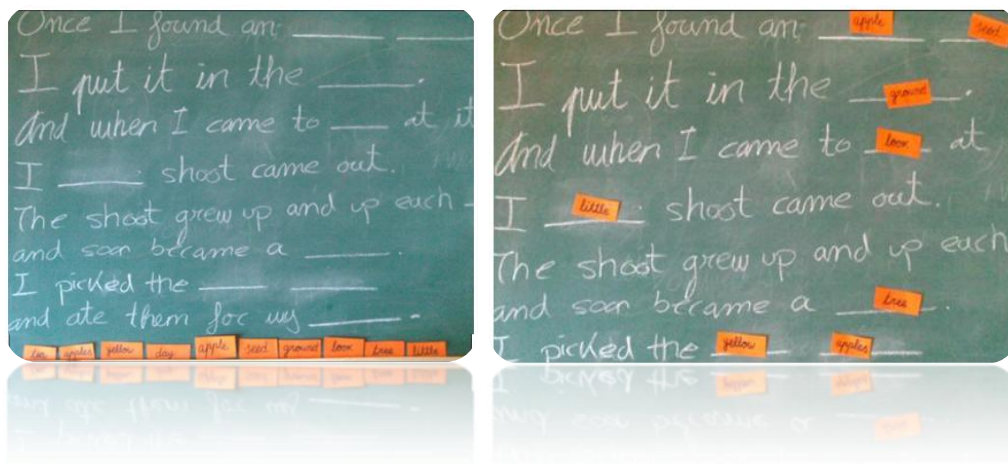 Once I found an
I put it in the ____.
And when I came to ____ at it
I ____ shoot came out.
The shoot grew up and up each
and soon became a ____.
I picked the ____ ____
and ate them for my ____.
tea apples yellow day apple seed ground look tree little
Once I found an apple seed
I put it in the ground.
And when I came to look at
I little shoot came out.
The shoot grew up and up each
and soon became a tree.
I picked the yellow apples